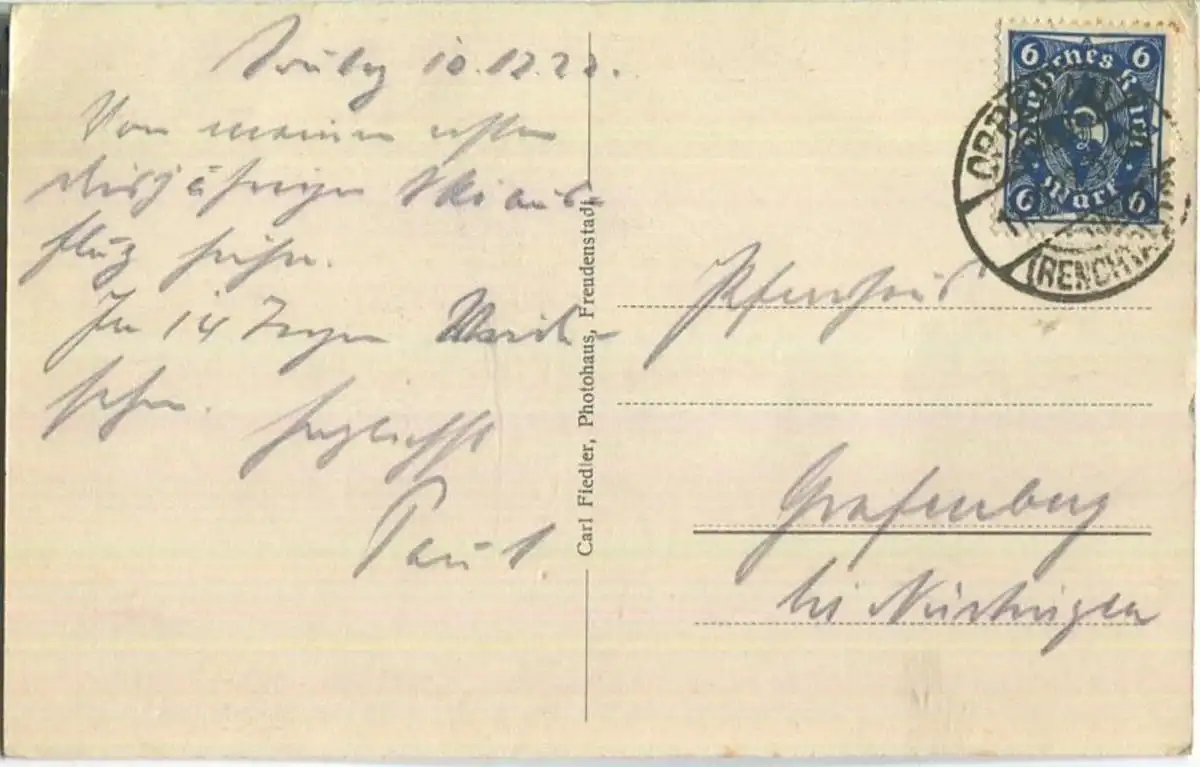 10.12.22.
Von meinem ersten
diesjährigen Skiaus-
flug
In 14 Tagen Wied-
sehen.
herzlichst
Paul.
Carl Fiedler, Photohaus, Freudenstadt
6 6
Deutsches Reich
6 Mark 6
OPPENAU
(RENCHTAL)
Pfarrhaus
Grafenberg
bei Nürtingen